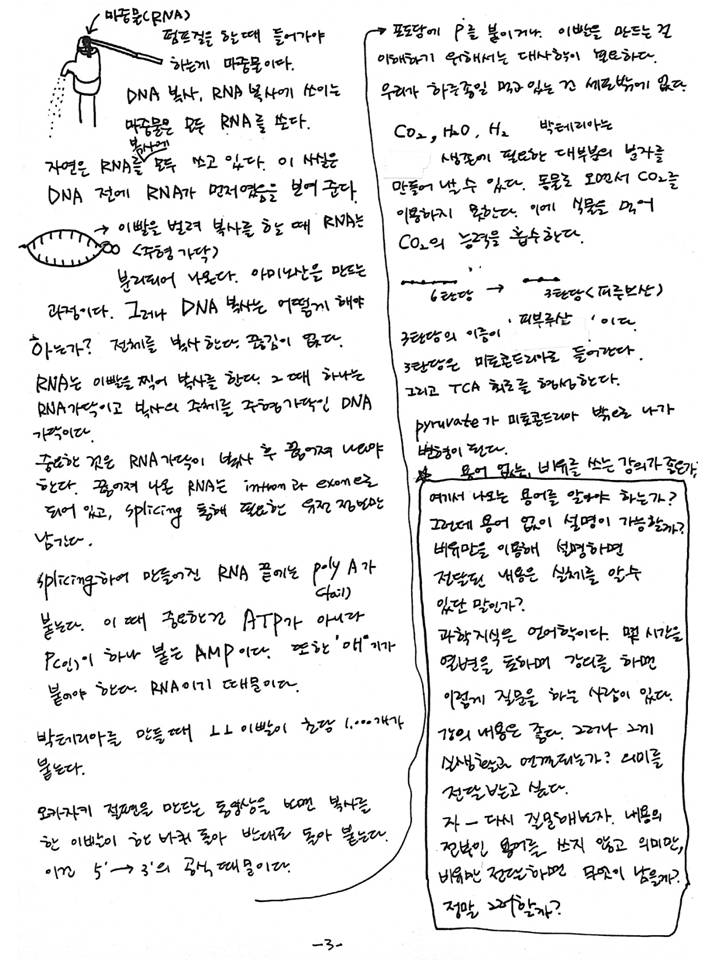 마중물(RNA)
펌프질을 할 때 들어가야
하는게 마중물이다.
DNA 복사, RNA 복사에 쓰이는
마중물은 모두 RNA를 쓴다.
복사에
자연은 RNA를 모두 쓰고 있다. 이 사실은
DNA 전에 RNA가 먼저였음을 보여 준다.
→ 이빨을 벌려 복사를 할 때 RNA는
<주형가닥>
분리되어 나온다. 아미노산을 만드는
과정이다. 그러나 DNA 복사는 어떻게 해야
하는가? 전체를 복사한다. 끊김이 없다.
RNA는 이빨을 찢어 복사를 한다. 그 때 하나는
RNA가닥이고 복사의 주체를 주형가닥인 DNA
가닥이다.
중요한 것은 RNA가닥이 복사 후 끊어져 나와야
한다. 끊어져 나온 RNA는 intron과 exone로
되어 있고, splicing 통해 필요한 유전정보만
남긴다.
splicing하여 만들어진 RNA 끝에는 poly A가
(tail)
붙는다. 이 때 중요한건 ATP가 아니라
P(인)이 하나 붙은 AMP이다. 또한 "OH"기가
붙어야 한다. RNA이기 때문이다.
박테리아를 만들때 ㅗㅗ 이빨이 초당 1,000개가
붙는다.
오카자키 절편을 만드는 동영상을 보면 복사를
한 이빨이 한 바퀴 돌아 반대로 돌아 붙는다.
이건 5'→3'의 공식 때문이다.
→ 포도당에 P를 붙이거나 이빨을 만드는 건
이해하기 위해서는 대사학이 필요하다.
우리가 하루종일 먹고 있는 건 세포밖에 없다.
CO2, H2O, H2 박테리아는
생존에 필요한 대부분의 분자를
만들어 낼 수 있다. 동물로 오면서 CO2를
이용하지 못한다. 이에 식물을 먹어
CO2의 능력을 흡수한다.
6탄당 → 3탄당<피루브산>
3탄당의 이름이 '피부루산'이다.
3탄당은 미토콘드리아로 들어간다.
그리고 TCA 회로를 형성한다.
pyruvate가 미토콘드리아 밖으로 나가
변형이 된다.
용어 없는, 비유를 쓰는 강의가 좋은가,
여기서 나오는 용어를 알아야 하는가?
그런데 용어 없이 설명이 가능할까?
비유만을 이용해 설명하면
전달된 내용은 실체를 알 수
있단 말인가?
과학지식은 언어학이다. 몇 시간을
열변을 토하며 강의를 하면
이렇게 질문을 하는 사람이 있다.
강의 내용은 좋다. 그러나 그게
실생활과 연계되는가? 의미를
전달받고 싶다.
자 - 다시 질문해보자. 내용의
전부인 용어를 쓰지 않고 의미만,
비유만 전달하면 무엇이 남을까?
정말 그러할까?
-3-